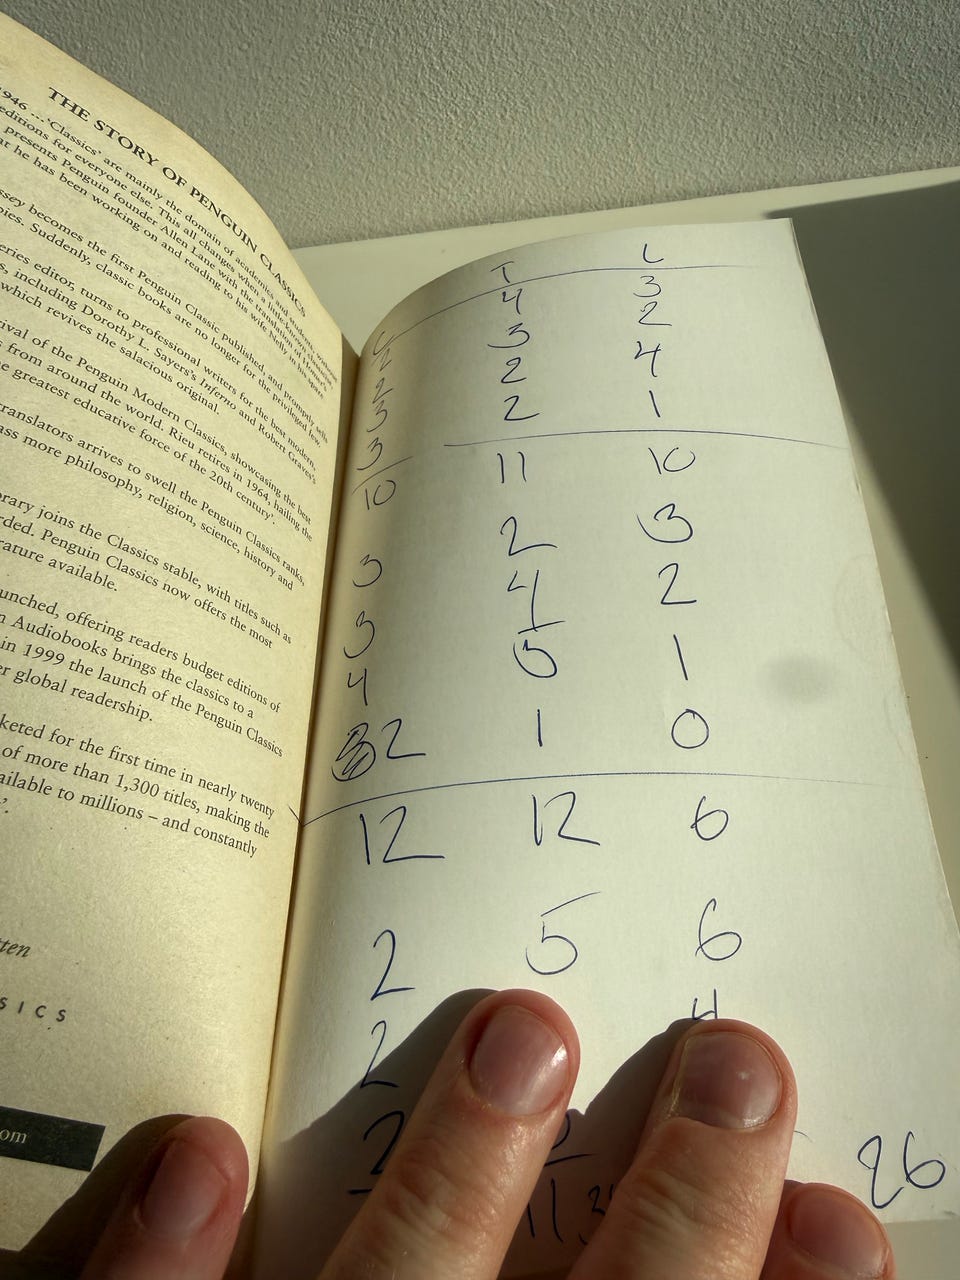 THE STORY OF PENGUIN CLASSICS
1946 ... 'Classics' are mainly the domain of academics and students, without
editions for everyone else. This all changes when a little-known classicist
presents Penguin founder Allen Lane with the translation of Homer's
that he has been working on and reading to his wife Nelly in his spare
becomes the first Penguin Classic published, and promptly sells
Suddenly, classic books are no longer for the privileged few.
series editor, turns to professional writers for the best modern,
including Dorothy L. Sayers's Inferno and Robert Graves's
which revives the salacious original.
of the Penguin Modern Classics, showcasing the best
from around the world. Rieu retires in 1964, hailing the
greatest educative force of the 20th century'.
translators arrives to swell the Penguin Classics ranks,
more philosophy, religion, science, history and
joins the Classics stable, with titles such as
Penguin Classics now offers the most
available.
launched, offering readers budget editions of
Audiobooks brings the classics to a
in 1999 the launch of the Penguin Classics
global readership.
for the first time in nearly twenty
of more than 1,300 titles, making the
available to millions – and constantly
T L
4 3
2 3 2
2 2 4
3 2 1
3 11 10
10
2 3
3 4 2
3 5 1
4
2 1 0
12 12 6
2 5 6
2 4
2
11
26